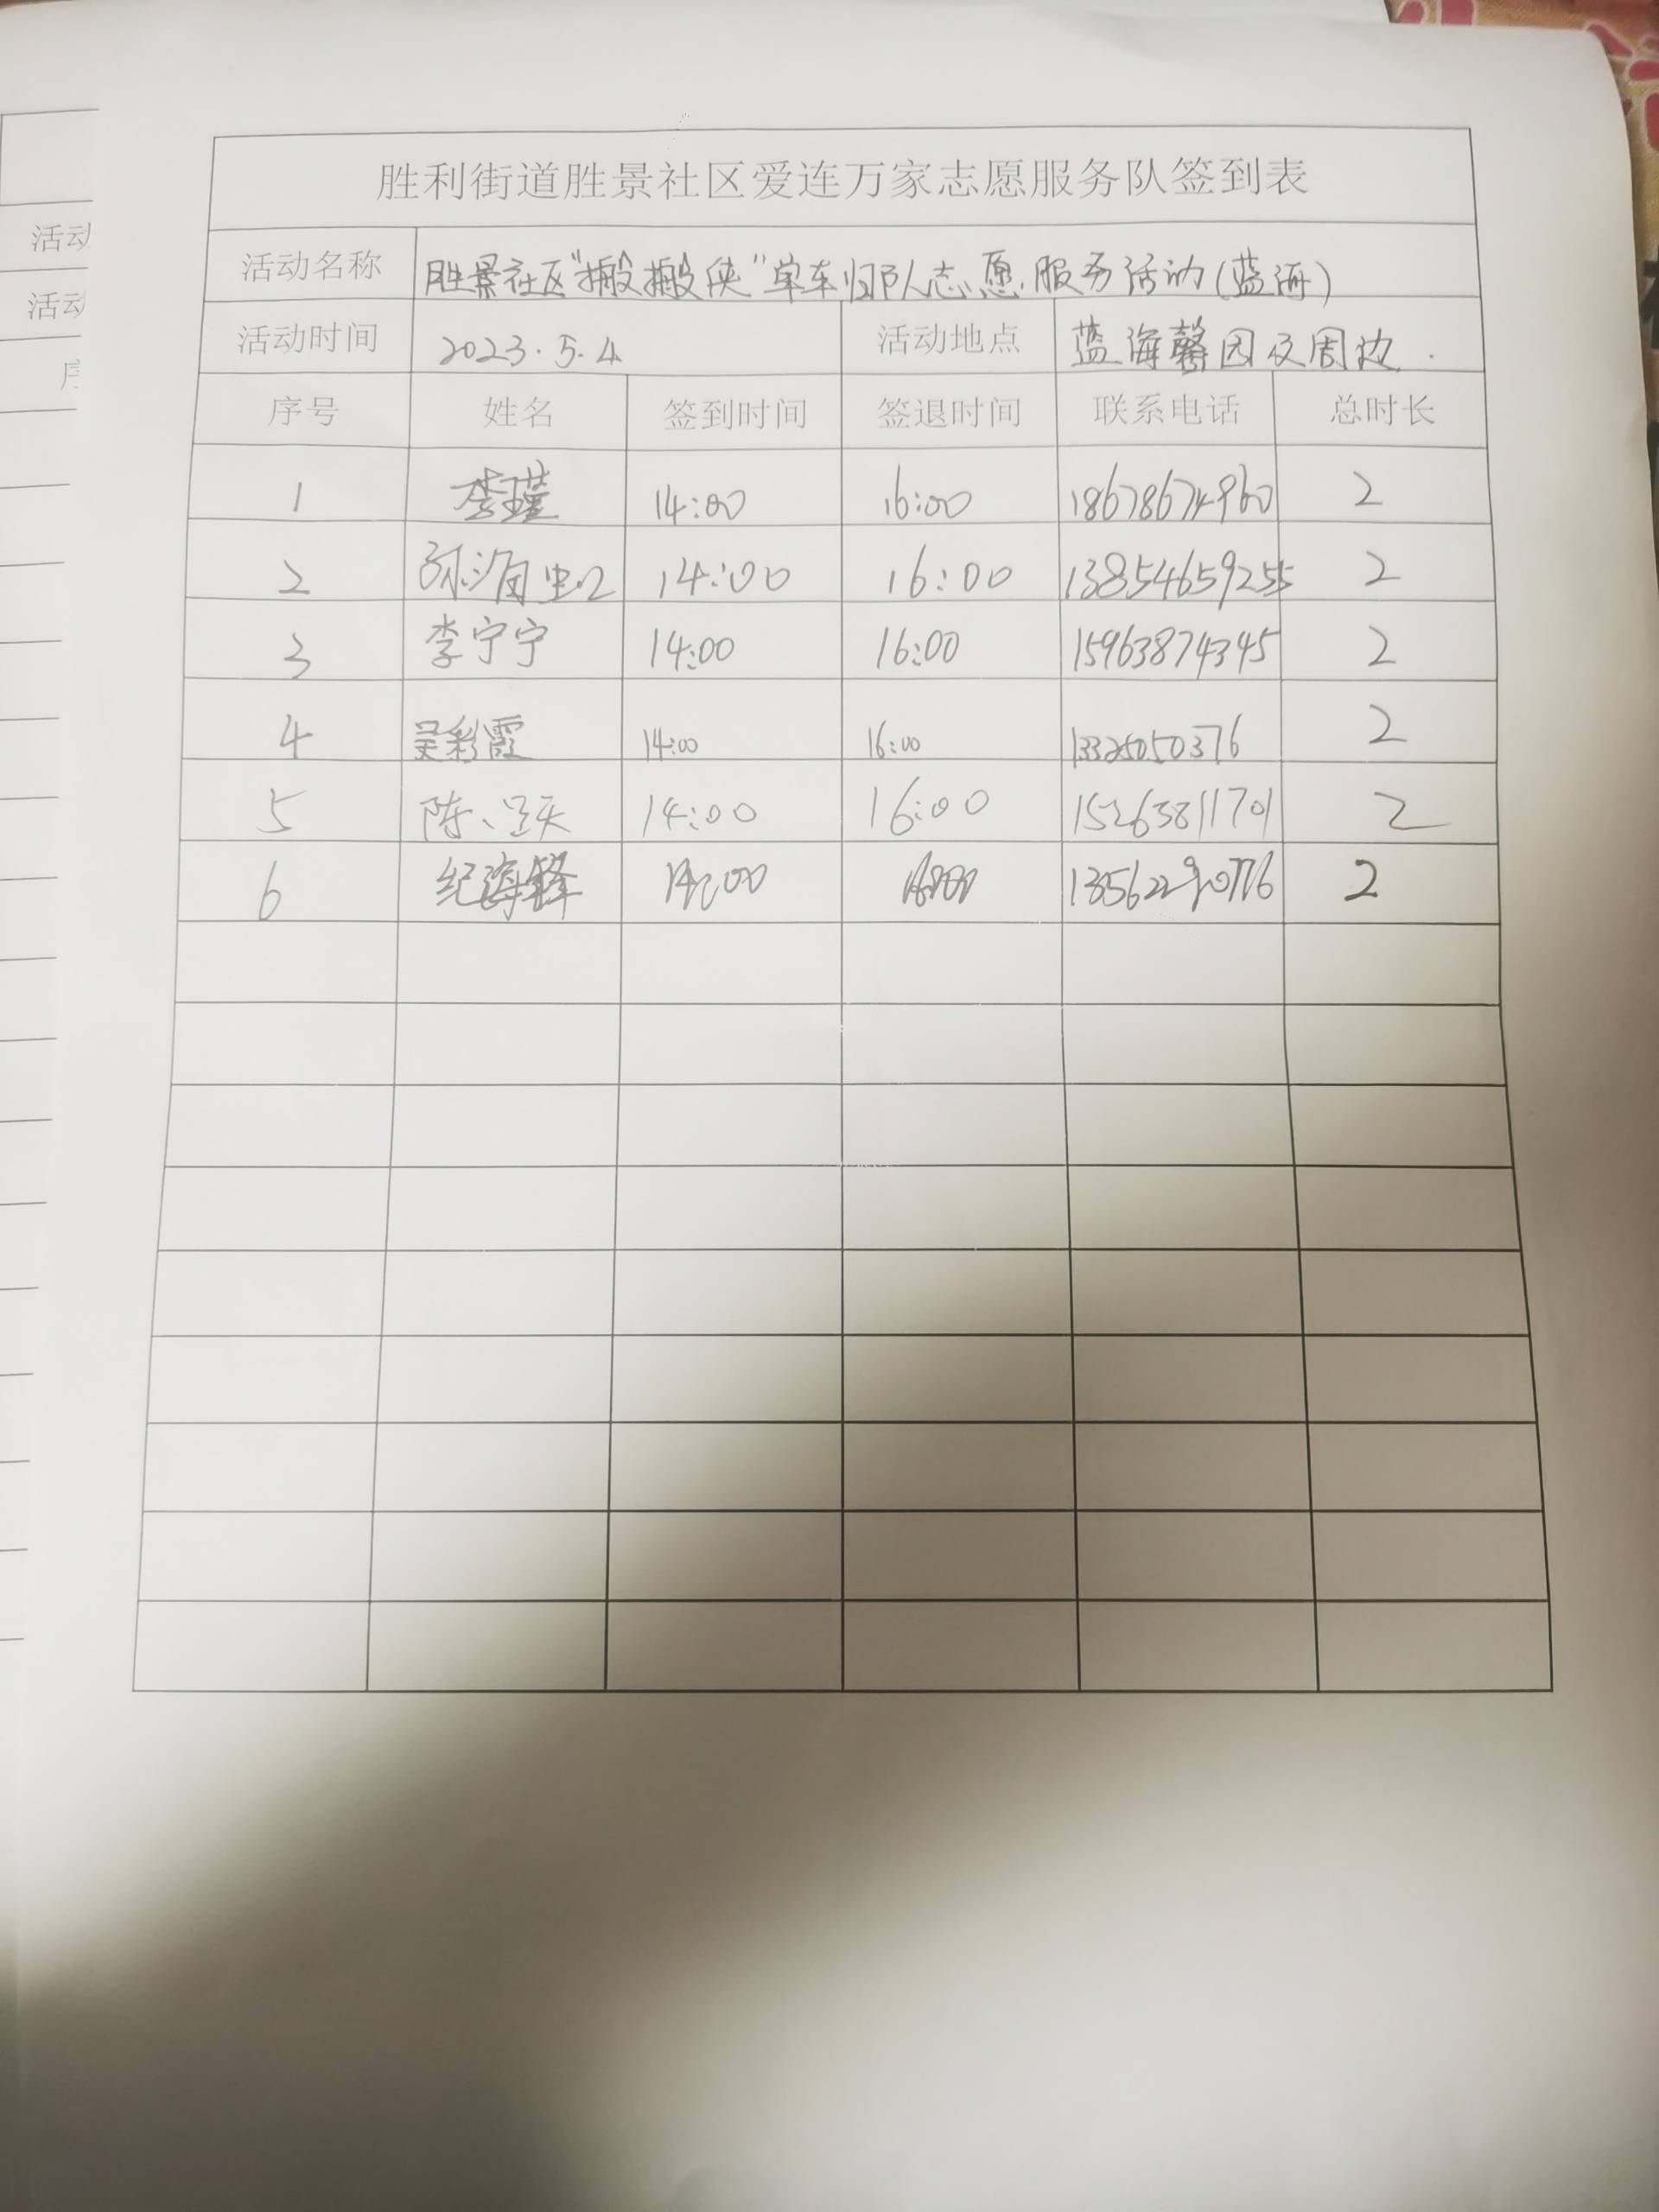 胜利街道胜景社区爱连万家志愿服务队签到表
活动名称 胜景社区"搬搬侠"单车归队志愿服务活动(蓝海)
活动时间 2023.5.4 活动地点 蓝海馨园及周边.
序号 姓名 签到时间 签退时间 联系电话 总时长
1 李瑾 14:00 16:00 18678674960 2
2 14:00 16:00 13854659255 2
3 李宁宁 14:00 16:00 15963874345 2
4 吴彩霞 14:00 16:00 13325050376 2
5 14:00 16:00 15263811701 2
6 纪海锋 14:00 16:00 2
活动
活动
序